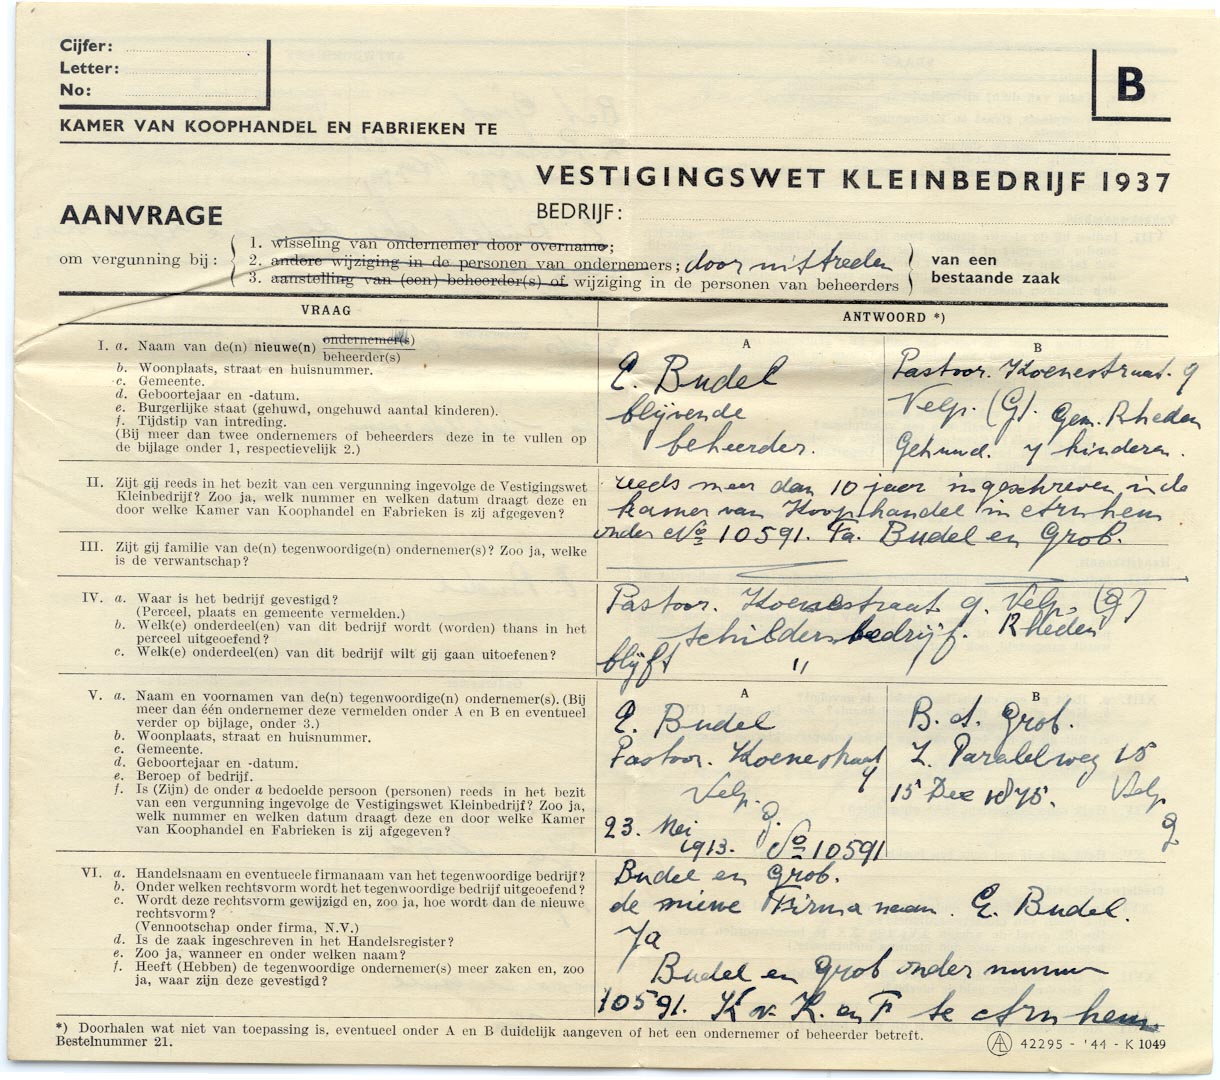 Cijfer:
Letter:
No:
B
KAMER VAN KOOPHANDEL EN FABRIEKEN TE
VESTIGINGSWET KLEINBEDRIJF 1937
AANVRAGE
BEDRIJF:
om vergunning bij:
1. wisseling van ondernemer door overname;
2. andere wijziging in de personen van ondernemers; door uittreden
3. aanstelling van (een) beheerder(s) of wijziging in de personen van beheerders
van een
bestaande zaak
VRAAG
ANTWOORD *)
I. a. Naam van de(n) nieuwe(n) ondernemer(s)
beheerder(s)
b. Woonplaats, straat en huisnummer.
c. Gemeente.
d. Geboortejaar en -datum.
e. Burgerlijke staat (gehuwd, ongehuwd aantal kinderen).
f. Tijdstip van intreding.
(Bij meer dan twee ondernemers of beheerders deze in te vullen op
de bijlage onder 1, respectievelijk 2.)
A
E. Budel
blijvende
beheerder.
B
Pastoor. Koenestraat. 9
Velp. (G). Gem. Rheden
Gehuwd. 4 kinderen.
II. Zijt gij reeds in het bezit van een vergunning ingevolge de Vestigingswet
Kleinbedrijf? Zoo ja, welk nummer en welken datum draagt deze en
door welke Kamer van Koophandel en Fabrieken is zij afgegeven?
reeds meer dan 10 jaar ingeschreven in de
kamer van Koophandel in Arnhem
onder No 10591. Fa. Budel en Grob.
III. Zijt gij familie van de(n) tegenwoordige(n) ondernemer(s)? Zoo ja, welke
is de verwantschap?
IV. a. Waar is het bedrijf gevestigd?
(Perceel, plaats en gemeente vermelden.)
b. Welk(e) onderdeel(en) van dit bedrijf wordt (worden) thans in het
perceel uitgeoefend?
c. Welk(e) onderdeel(en) van dit bedrijf wilt gij gaan uitoefenen?
Pastoor. Koenestraat 9. Velp. (G)
Schildersbedrijf. Rheden
blijft "
V. a. Naam en voornamen van de(n) tegenwoordige(n) ondernemer(s). (Bij
meer dan één ondernemer deze vermelden onder A en B en eventueel
verder op bijlage, onder 3.)
b. Woonplaats, straat en huisnummer.
c. Gemeente.
d. Geboortejaar en -datum.
e. Beroep of bedrijf.
f. Is (Zijn) de onder a bedoelde persoon (personen) reeds in het bezit
van een vergunning ingevolge de Vestigingswet Kleinbedrijf? Zoo ja,
welk nummer en welken datum draagt deze en door welke Kamer
van Koophandel en Fabrieken is zij afgegeven?
A
E. Budel
Pastoor. Koenestraat
9
Velp.
G.
23. Mei
1913. No 10591
B
B. A. Grob.
Z. Paralelweg 15
15 Dec 1875. Velp
G
VI. a. Handelsnaam en eventueele firmanaam van het tegenwoordige bedrijf?
b. Onder welken rechtsvorm wordt het tegenwoordige bedrijf uitgeoefend?
c. Wordt deze rechtsvorm gewijzigd en, zoo ja, hoe wordt dan de nieuwe
rechtsvorm?
(Vennootschap onder firma, N.V.)
d. Is de zaak ingeschreven in het Handelsregister?
e. Zoo ja, wanneer en onder welken naam?
f. Heeft (Hebben) de tegenwoordige ondernemer(s) meer zaken en, zoo
ja, waar zijn deze gevestigd?
Budel en Grob.
de nieuwe Firma naam. E. Budel.
Ja
Budel en Grob onder nummer
10591. K v. K. en F te Arnhem
*) Doorhalen wat niet van toepassing is, eventueel onder A en B duidelijk aangeven of het een ondernemer of beheerder betreft.
Bestelnummer 21.
42295 - '44 - K 1049